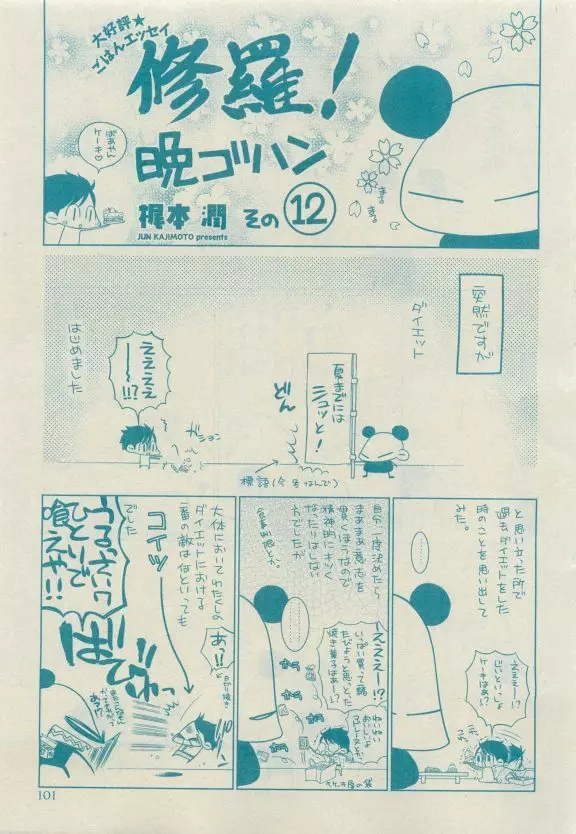 大好評★
ごはんエッセイ
修羅!
晩ゴハン
梶本潤 その⑫
JUN KAJIMOTO presents
ばあやん
ケーキ♡
突然ですが
ダイエット
はじめました
夏までには
シュッと!
どん
ええええ
ーー!!?
ガション
標語(今もはんで)
と思い立った所で
過去ダイエットをした
時のことを思い出して
みた。
ええぇー!?
ケーキはぁー!?
自分一度決めたら
まあまあ意志を
貫くほうなので
精神的にキツく
なったりはしない
んでしたが
ええぇー!?
いっぱい買って
たびようと思っとった
焼き菓子はぁー!?
わいわい
おいしいよ
ケーキ屋の袋
大体において わたくしの
ダイエットにおける
一番の敵は何といっても
コイツ
でした
あっ!!
うるさい
ひとりで
喰えや!!
101